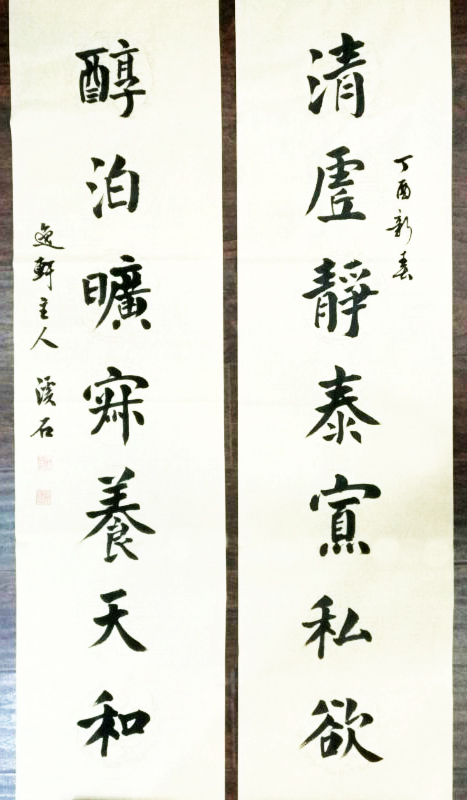 清虛靜泰寡私欲
丁酉新春
醇泊曠寂養天和
逸軒主人 溪石